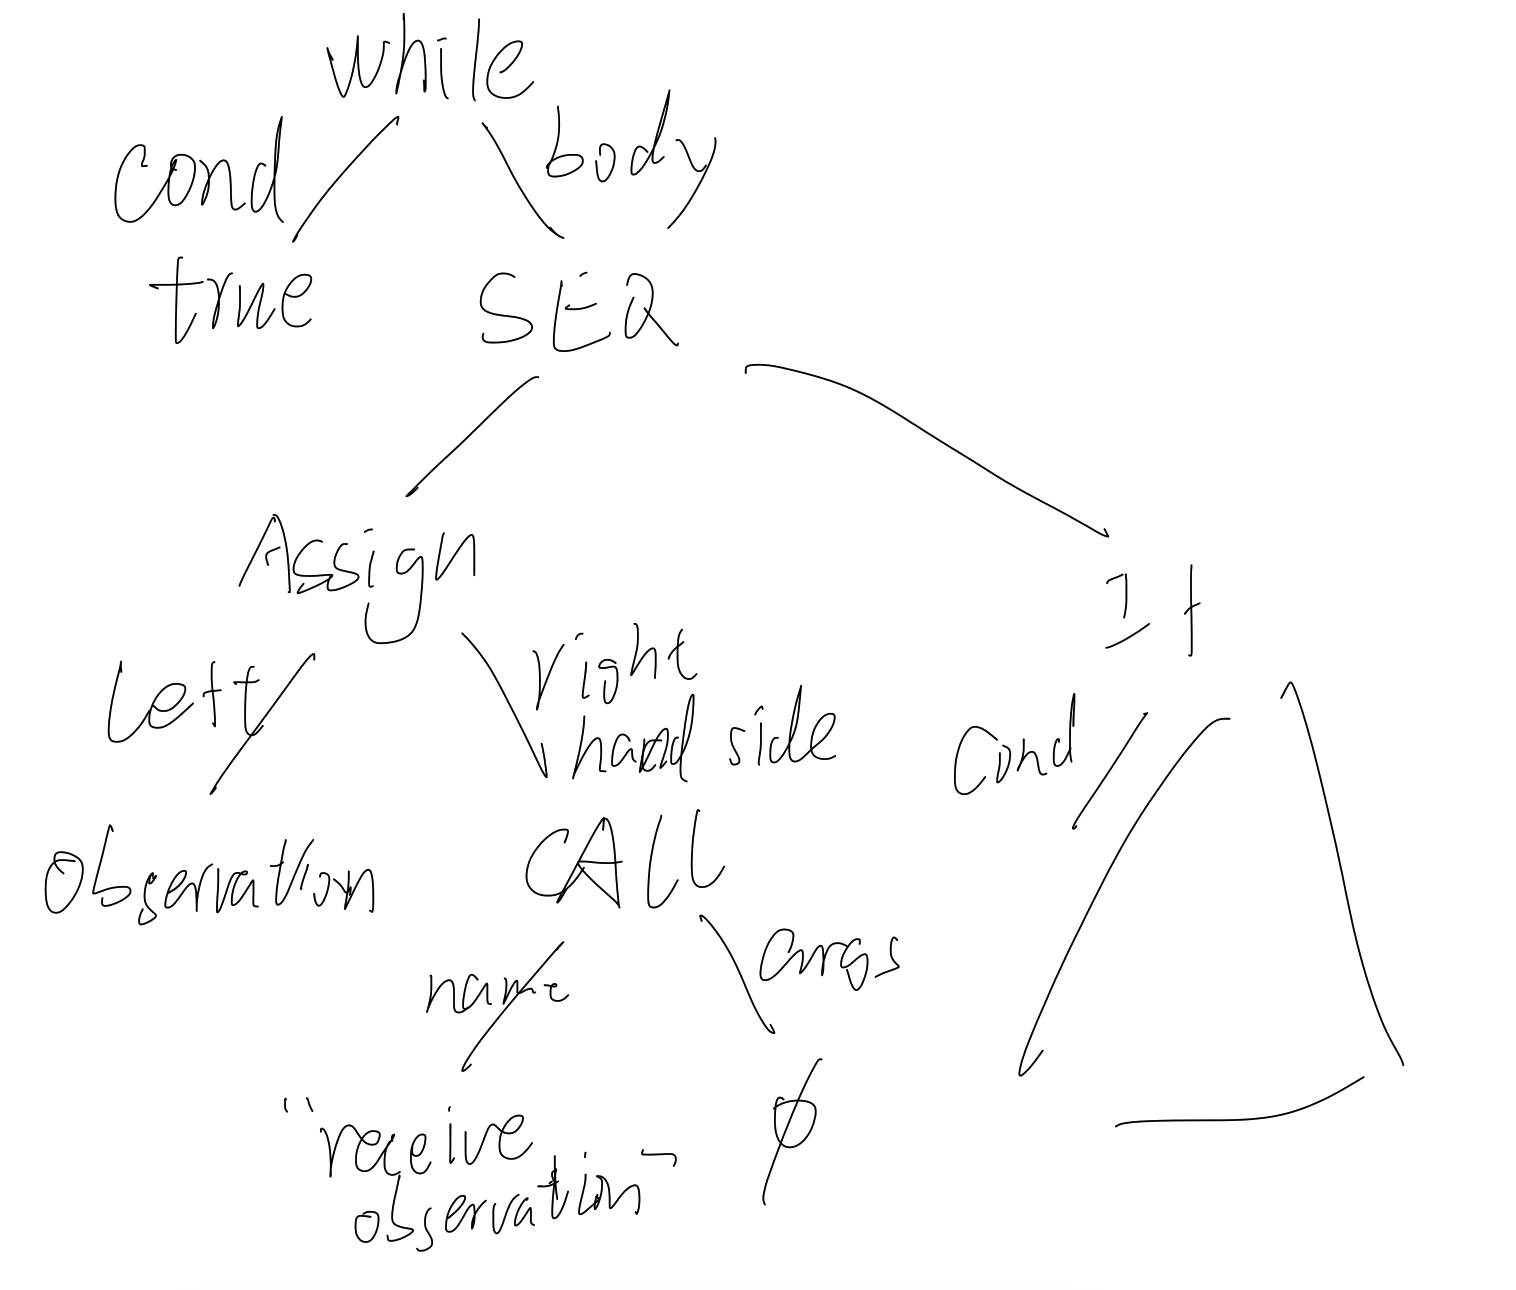 while
cond
body
true
SEQ
Assign
If
left
right
hand side
cond
observation
CALL
name
args
"receive
observation"
∅